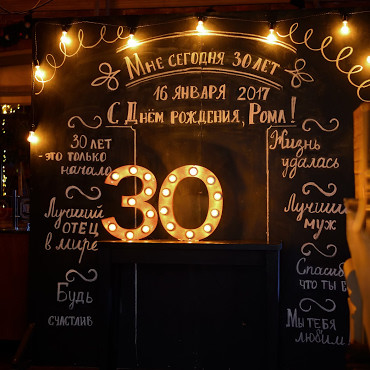 Мне сегодня 30 лет
16 января 2017
С Днём рождения, Рома!
30 лет
- это только
начало
Лучший
отец
в мире
Будь
счастлив
30
Жизнь
удалась
Лучший
муж
Спасибо
что ты
Мы тебя
любим